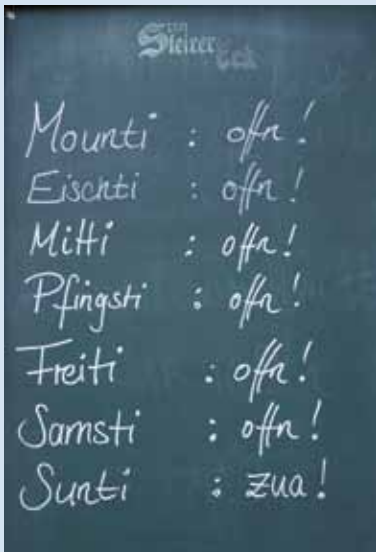 Steirer
Eck
Mounti : offn!
Eischti : offn!
Mitti : offn!
Pfingsti : offn!
Freiti : offn!
Samsti : offn!
Sunti : zua!